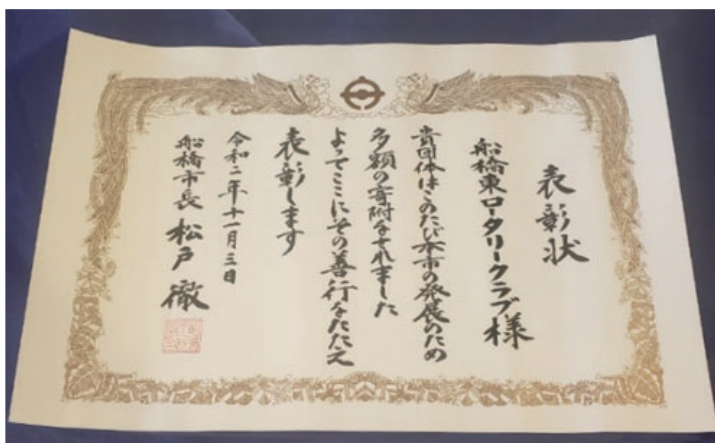 表彰状
船橋東ロータリークラブ様
貴団体はこのたび本市の発展のため
多額の寄附をされました
よってここにその善行をたたえ
表彰します
令和二年十一月三日
船橋市長 松戸 徹